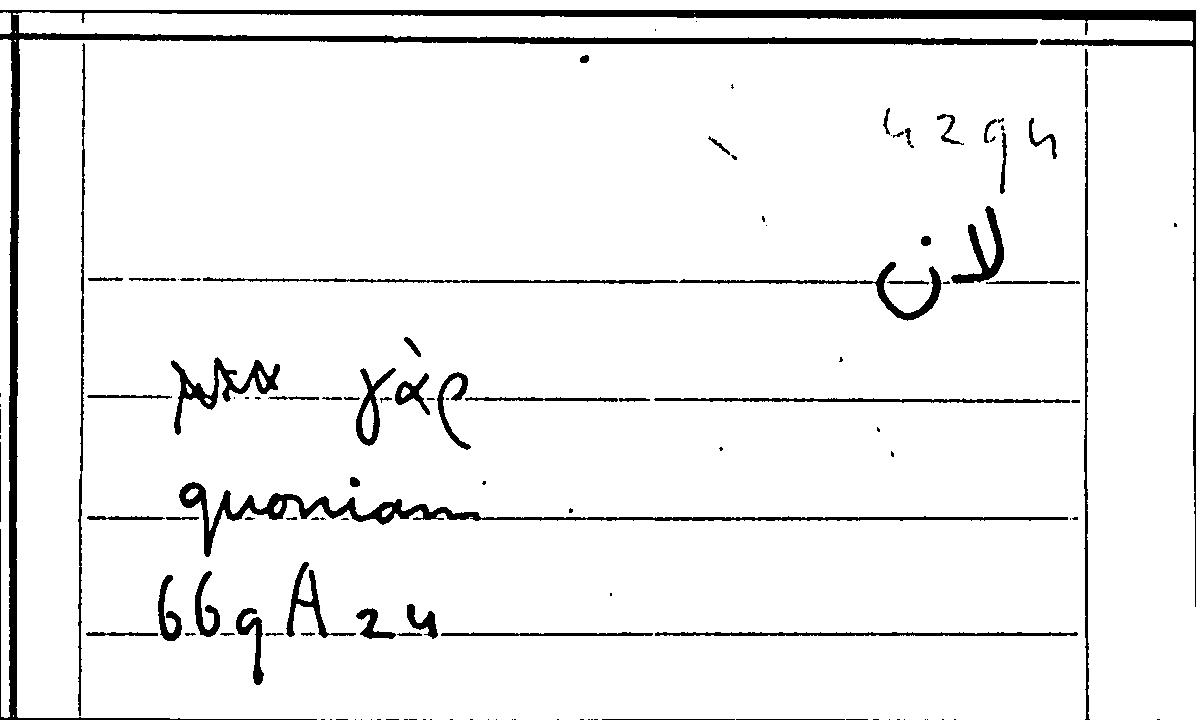 4294
لان
γὰρ
quoniam
669A24